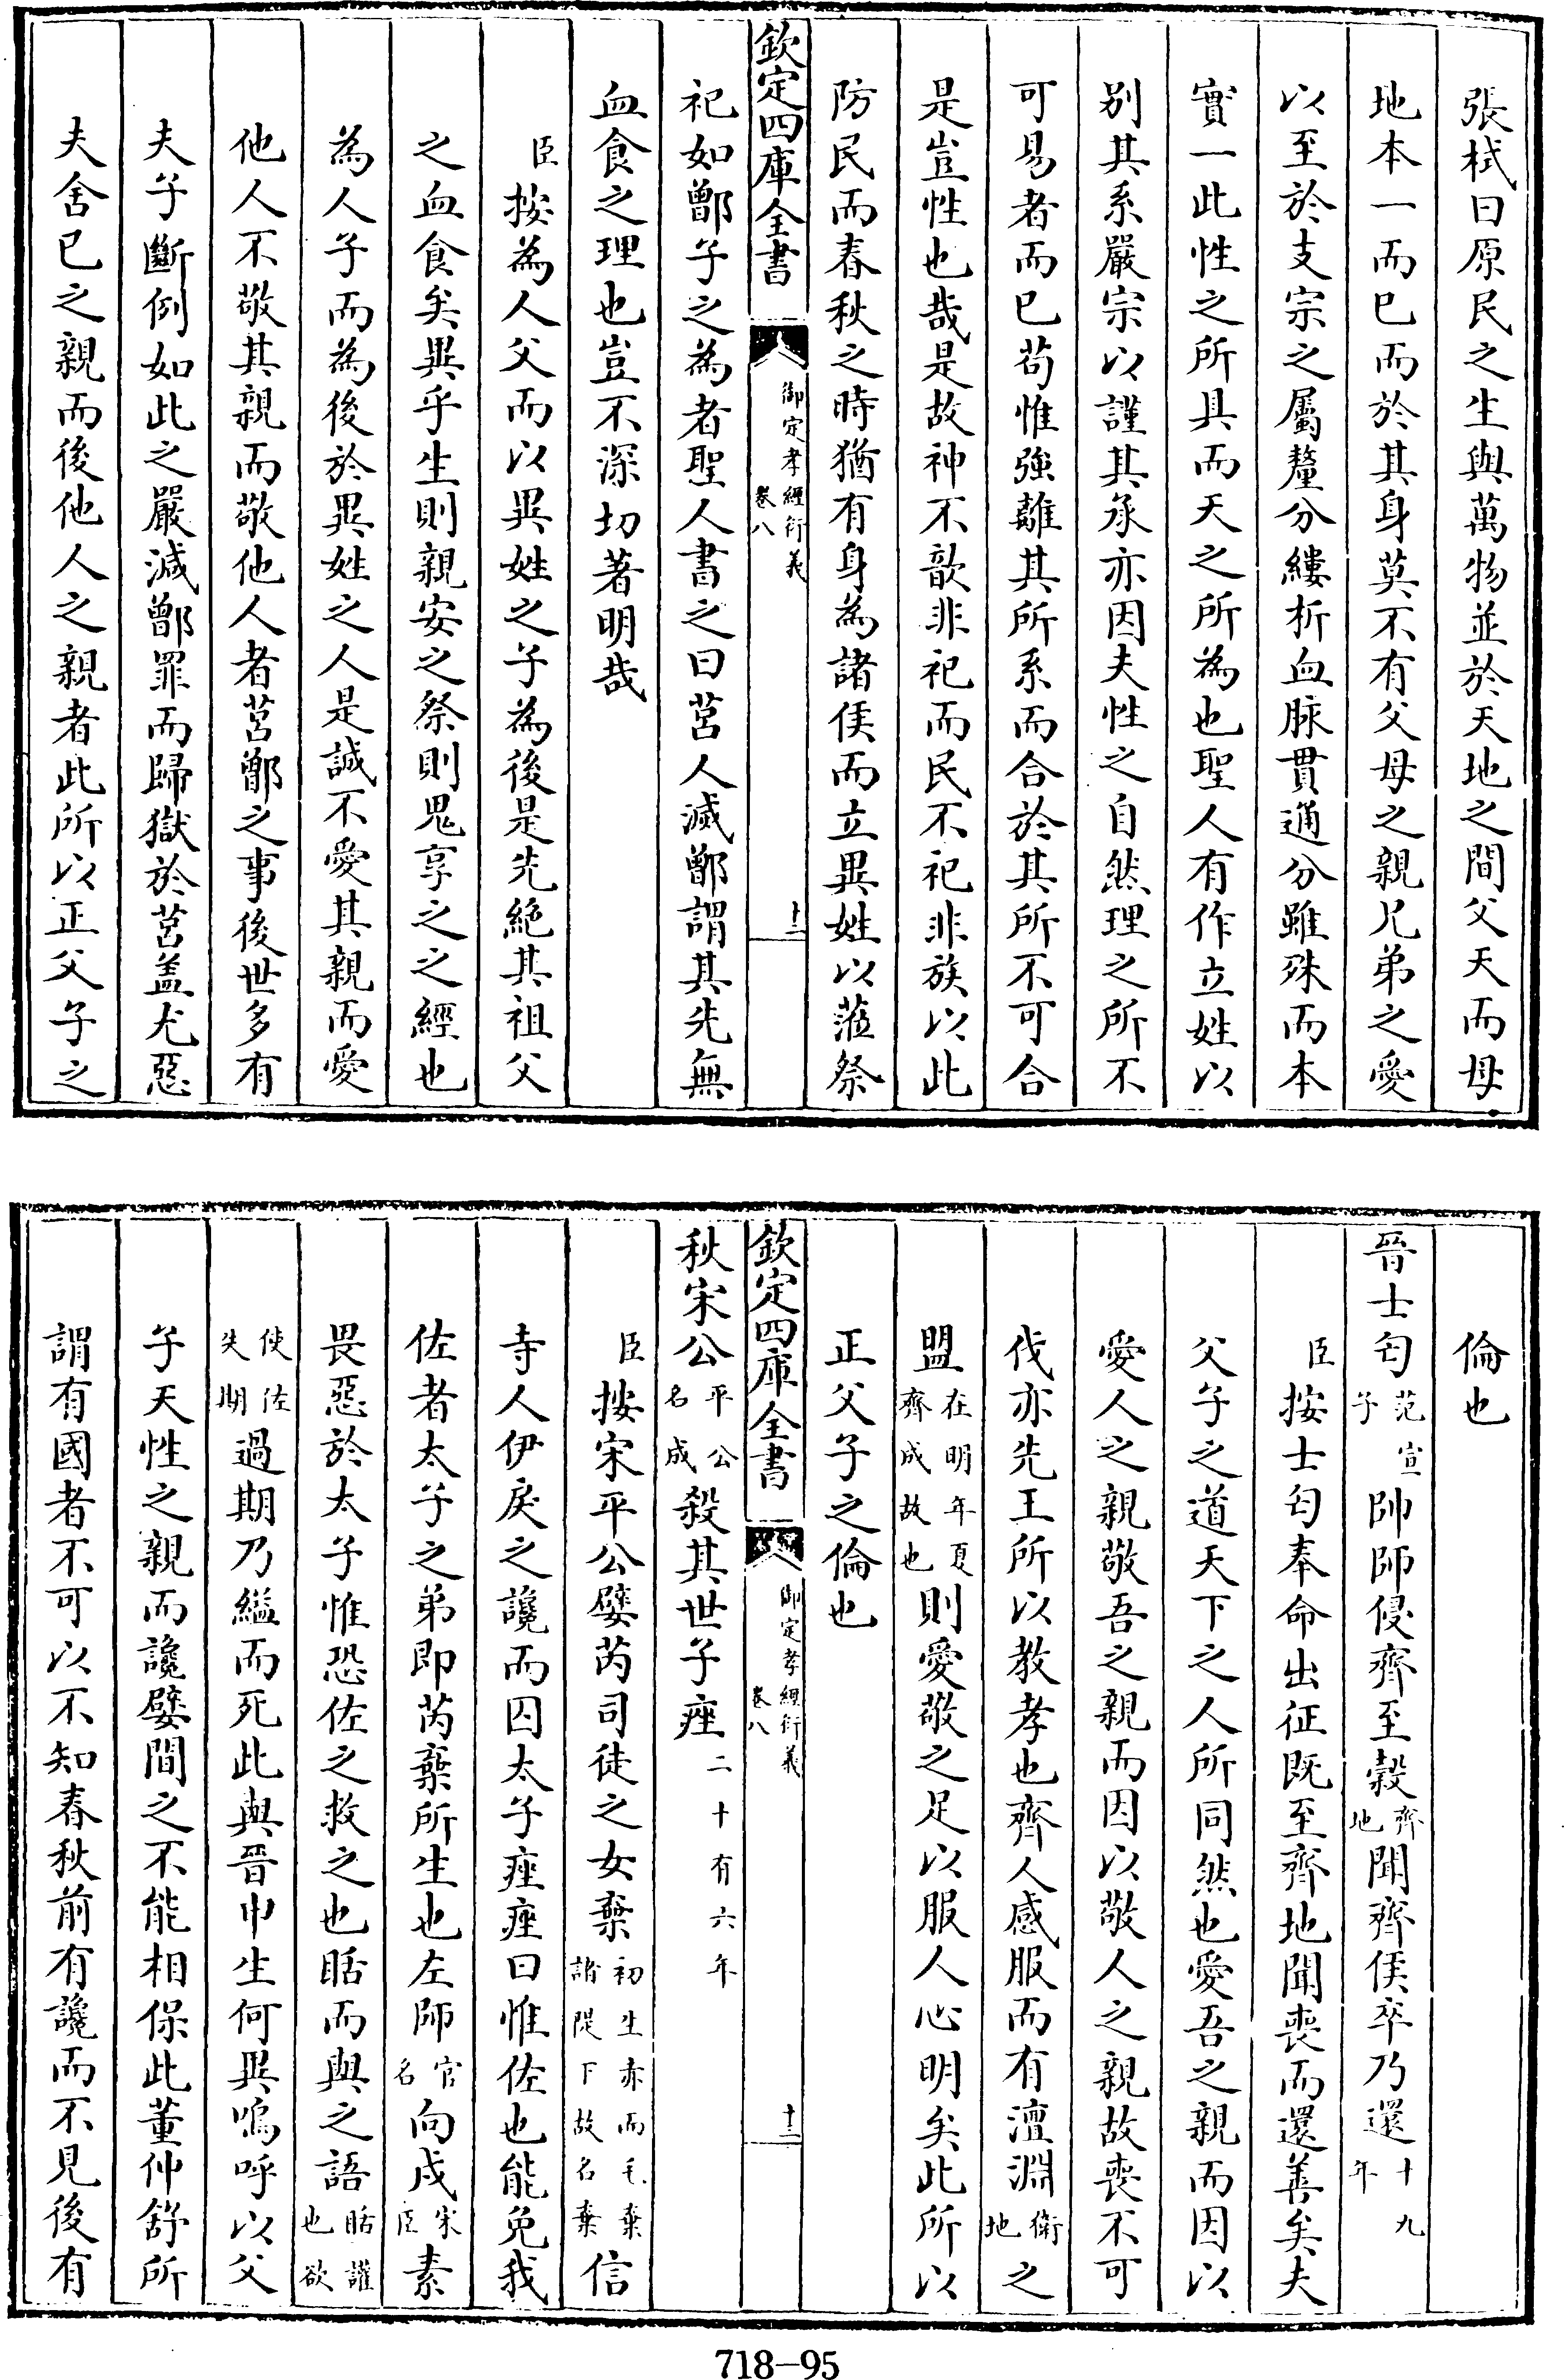 張栻曰原民之生與萬物並於天地之間父天而母
地本一而已而於其身莫不有父母之親兄弟之愛
以至於支宗之屬釐分縷析血脉貫通分雖殊而本
實一此性之所具而天之所為也聖人有作立姓以
别其系嚴宗以謹其承亦因夫性之自然理之所不
可易者而已苟惟強離其所系而合於其所不可合
是豈性也哉是故神不歆非祀而民不祀非族以此
防民而春秋之時猶有身為諸侯而立異姓以蒞祭
欽定四庫全書
御定孝經衍義
卷八
十二
祀如鄫子之為者聖人書之曰莒人滅鄫謂其先無
血食之理也豈不深切著明哉
臣按為人父而以異姓之子為後是先絕其祖父
之血食矣異乎生則親安之祭則鬼享之之經也
為人子而為後於異姓之人是誠不愛其親而愛
他人不敬其親而敬他人者莒鄫之事後世多有
夫子斷例如此之嚴滅鄫罪而歸獄於莒盖尤惡
夫舍已之親而後他人之親者此所以正父子之
倫也
晉士匄范宣子帥師侵齊至榖齊地聞齊侯卒乃還十九年
臣按士匄奉命出征既至齊地聞喪而還善矣夫
父子之道天下之人所同然也愛吾之親而因以
愛人之親敬吾之親而因以敬人之親故喪不可
伐亦先王所以教孝也齊人感服而有澶淵衛地之
盟在明年夏齊成故也則愛敬之足以服人心明矣此所以
正父子之倫也
欽定四庫全書
御定孝經衍義
卷八
十三
秋宋公平公名成殺其世子痤二十有六年
臣按宋平公嬖芮司徒之女棄初生赤而毛棄諸隄下故名棄信
寺人伊戾之讒而囚太子痤痤曰惟佐也能免我
佐者太子之弟即芮棄所生也左師官名向戌宋臣素
畏惡於太子惟恐佐之救之也聒而與之語聒讙也欲
使佐失期過期乃縊而死此與晉申生何異嗚呼以父
子天性之親而讒嬖間之不能相保此董仲舒所
謂有國者不可以不知春秋前有讒而不見後有
718-95